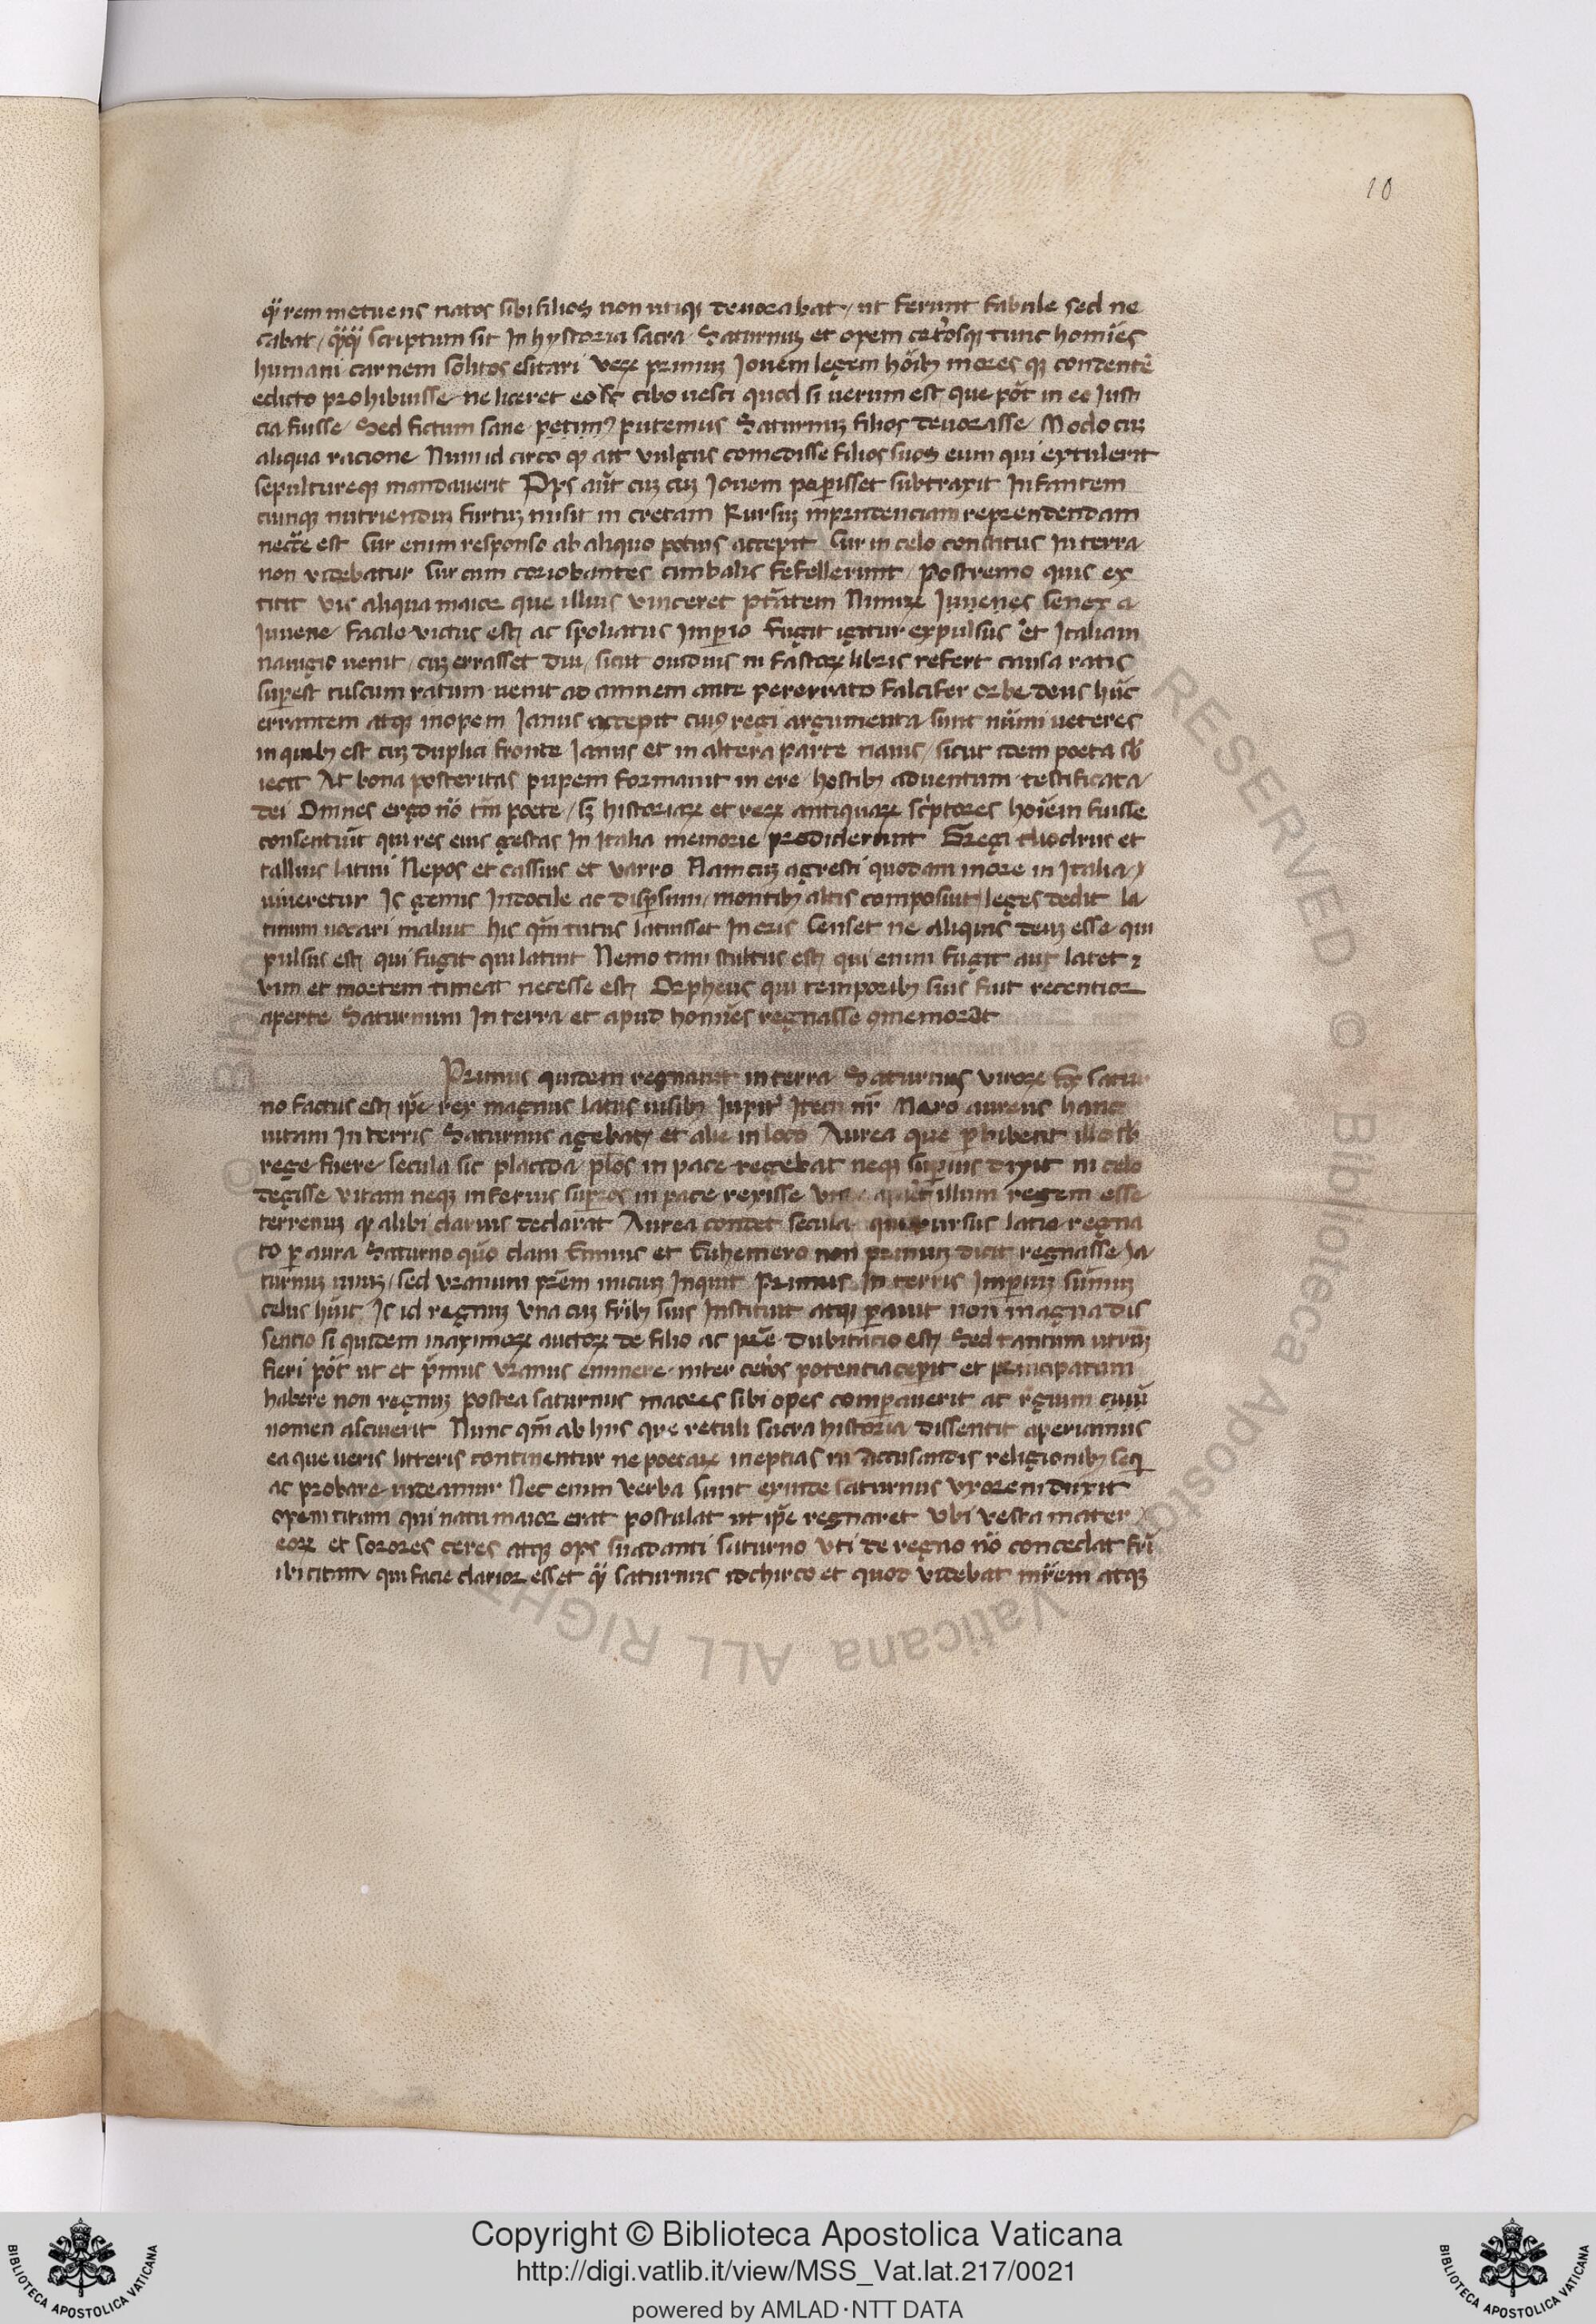 10
qͣ rem metuens natos sibi filios non utiqꝫ deuorabat / ut ferunt fabule sed ne
cabat / qͣqͣ scriptum sit In hystoria sacra Saturnuꝫ et opem ceterosqꝫ tunc homines
humani carnem solitos esitari Veꝝ primuꝫ Jouem legem hoībꝫ mores qꝫ condentē
edicto prohibuisse ne liceret eo cibo uesci quod si uerum est que pōt in eo Justi
cia fuisse Sed fictum sane putemus Saturnuꝫ filios deuorasse Modo cuꝫ
aliqua racione Num id circo qꝫ ait vulgus comedisse filios suos eum qui extulerit
sepultureqꝫ mandauerit Ops aūt cuꝫ cuꝫ Jouem peperisset subtraxit Infantem
eumqꝫ nutriendum furtim misit in cretam Rursuꝫ inprudenciam reprendendam
necē est Cur enim responso ab aliquo potius accepit Cur in celo constitus In terra
non videbatur Cur eum coriobantes cimbalis fefellerunt / Postremo quis ex
titit vis aliqua maior que illius vinceret ptātem Nimiꝝ Juuenes senex a
Juuene facile victus est ac spoliatus Imꝑio fugit igitur expulsus et Italiam
nauigio uenit / cuꝫ errasset diu / sicut ouidius in fastoꝝ libris refert causa ratis
suꝑest tuscum ratum uenit ad amnem ante pererrato falcifer orbe deus hūc
errantem atqꝫ inopem Janus accepit cuiꝰ regi argumenta sunt nūmi ueteres
in quibꝫ est cuꝫ duplici fronte Janus et in altera parte nauis / sicut idem poeta sb
iecit At bona posteritas pupem formauit in ere hostibꝫ aduentum testificata
dei Omnes ergo nō tm̄ poete / sꝫ historiaꝝ et reꝝ antiquaꝝ scͥptores hoīem fuisse
consentiūt qui res eius gestas In Italia memorie prodiderunt Greci diodrus et
tallius latini Nepos et cassius et varro Nam cuꝫ agresti quodam more in Italia
uiueretur Is genus Indocile ac disꝑsum / montibꝫ altis composuit leges dedit la
tinum uocari maluit his qm̄ tutus latuisset In oris Censet ne aliquis deuꝫ esse qui
pulsus est qui fugit qui latuit Nemo tam stultus est qui enim fugit aut latet
vim et mortem timeat necesse est Orpheus qui temporibꝫ suis fuit recentior
aperte Saturnum In terra et apud homīes regnasse ꝯmemorat
Primus quidem regnauit in terra Saturnus viroꝝ Ex satur
no factus est ip̄e rex magnus latus iusibꝫ Jupitͥ Item nr̄ Maro aureus hanc
uitam In terris Saturnus agebat et alie in loco Aurea que ꝑhibent illo sb
rege fuere secula sic placida plōs in pace regebat neqꝫ suꝑius dixit in celo
degisse vitam neqꝫ inferius suꝑos in pace rexisse illum regem esse
terrenuꝫ qꝫ alibi clarius declarat Aurea condet secula qui rursus latio regna
to ꝑ aura Saturno quōdam Ennius et Euhemero non primuꝫ dicit regnasse Sa
turnuꝫ sed vranum prēm Inquit Primus In terris Imꝑiuꝫ sūmuꝫ
celus hūit Is id regnuꝫ vna cuꝫ frībꝫ suis Instituit atqꝫ ꝑauit non magna dis
sentio si quidem maximoꝝ auctoꝝ de filio ac prē dubitacio est Sed tantum utrūꝫ
fieri pōt ut et pͥmus vranus eminere inter ceͭos potencia ceperit et principatum
habere non regnuꝫ postea saturnus maores sibi opes comparauerit ac rēgium
nomen asciuerit Nunc qm̄ ab hiis que retuli sacra historia dissentit aperiamus
ea que ueris litteris continentur ne poetaꝝ ineptias in accusandis religionibꝫ seqi
ac probare uideamur Hec enim verba sunt exinde saturnus vxorem duxit
opem titam qui natu maior erat postulat ut ip̄e regnaret Vbi vesta mater
eoꝝ et sorores ceres atqꝫ ops suadanti saturno uti de regno nō concedat frī
ibi titan qui facie clarior esset qͣ saturnus idchirco et quod videbat mr̄em atqꝫ
Copyright © Biblioteca Apostolica Vaticana
http://digi.vatlib.it/view/MSS_Vat.lat.217/0021
powered by AMLAD·NTT DATA
BIBLIOTECA APOSTOLICA VATICANA
BIBLIOTECA APOSTOLICA VATICANA
© Biblioteca Apostolica Vaticana ALL RIGHTS RESERVED